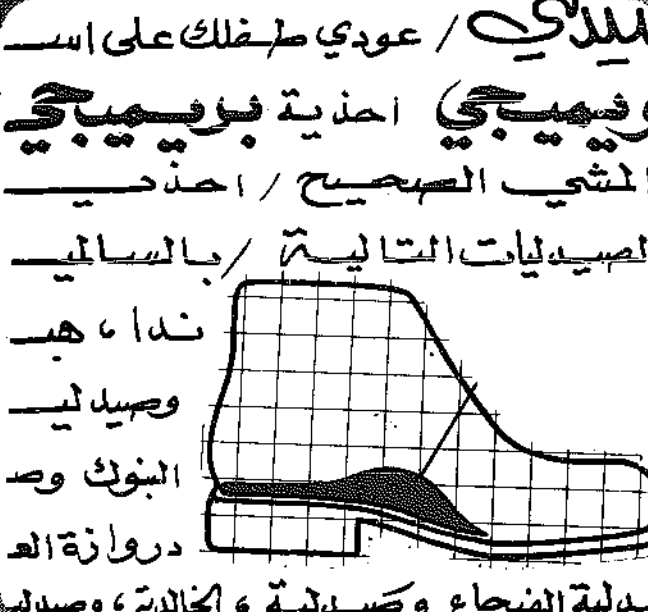 سيدتي / عودي طفلك على اســ
وفيميبجي احذية بريميبجي
المشي الصحيح / احذيــ
لصيدليات التالية / بالسالميــ
ندا، هيــ
وصيدليــ
البنوك وصـ
دروازة العـ
ـدلية الفيحاء وصيدلية ، الخالدية ، وصيدليـ